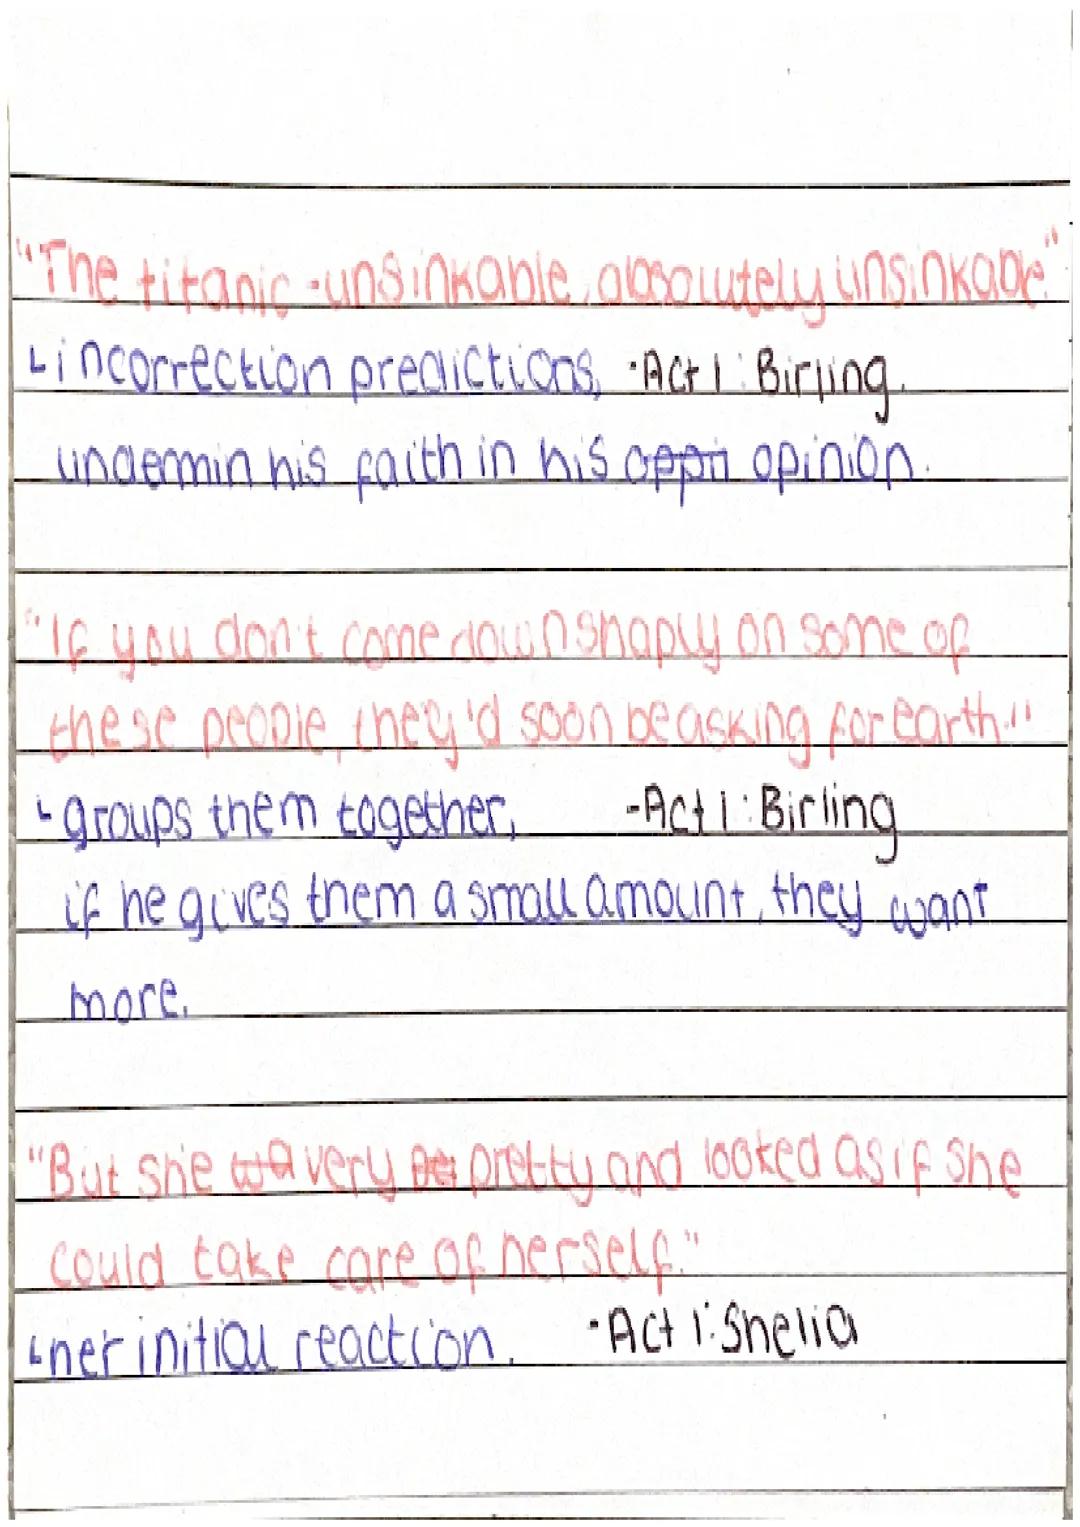 "The titanic -unsinkable, absolutely unsinkable."
↳ incorrection predictions, -Act 1: Birling.
undermin his faith in his oppn opinion.
"If you don't come down shaply on some of
these people, they'd soon be asking for earth."
↳ groups them together, -Act 1: Birling
if he gives them a small amount, they want
more.
"But she wa very pretty and looked as if she
could take care of herself."
↳ her initial reaction. -Act 1: Shelia